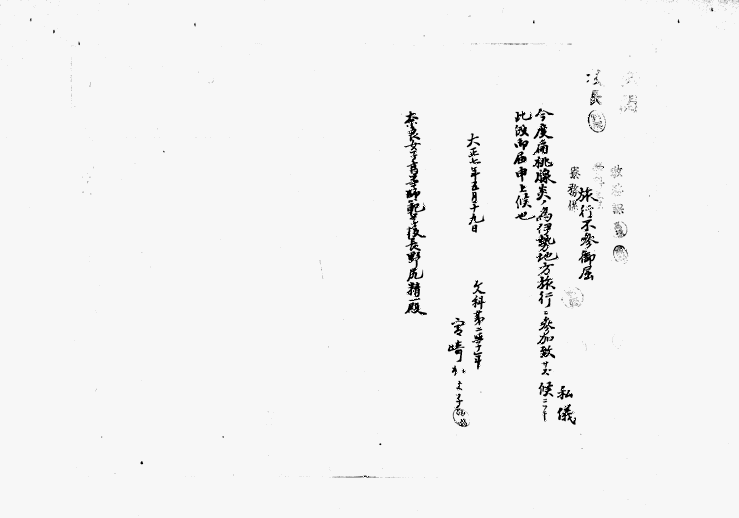 旅行不參御届
私儀
今度扁桃腺炎ノ為伊勢地方旅行ニ參加致サズ候ニ付
此段御届申上候也
大正七年五月十九日
文科第二學年
宮崎
奈良女子高等師範學校長野尻精一殿
教務課
寮務係